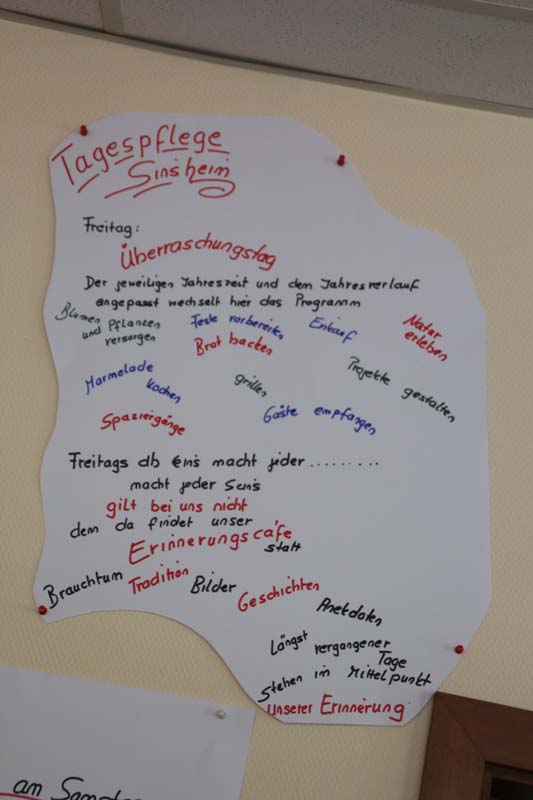 Tagespflege
Sinsheim
Freitag:
Überraschungstag
Der jeweiligen Jahreszeit und dem Jahresverlauf
angepasst wechselt hier das Programm
Blumen und Pflanzen versorgen
Feste vorbereiten
Einkauf
Natur erleben
Brot backen
Marmelade kochen
grillen
Projekte gestalten
Spaziergänge
Gäste empfangen
Freitags ab eins macht jeder ........
macht jeder Seins
gilt bei uns nicht
dem da findet unser
Erinnerungscafe
statt
Brauchtum Tradition Bilder Geschichten Anekdoten
Längst vergangener Tage
stehen im Mittelpunkt
unserer Erinnerung
am